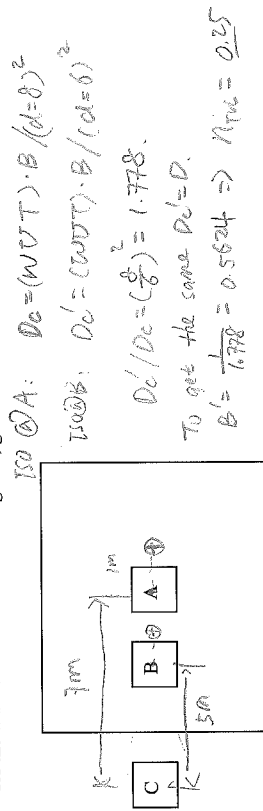 ISO @ A: Dc = (WUT)·B/(d=8)²
ISO @ B: Dc' = (WUT)·B/(d=6)²
Dc'/Dc = (8/6)² = 1.778.
To get the same Dc' = D.
B' = 1/1.778 = 0.5624 => = 0.25
7m
1m
A
B
C
5m